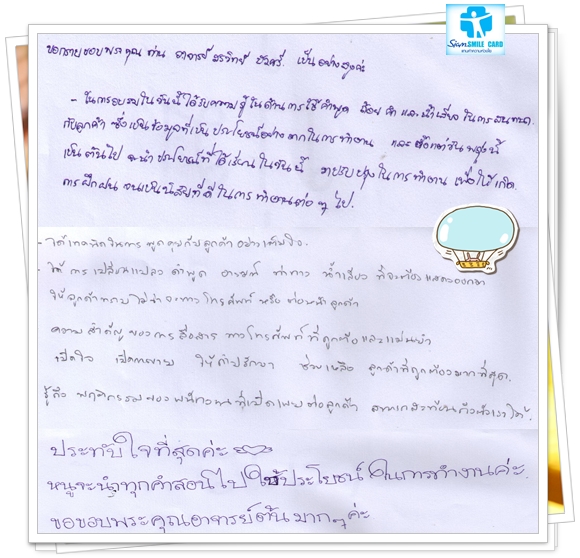 SiamSMILE CARD
ขอกราบขอบพระคุณ ท่าน อาจารย์ เป็นอย่างสูงค่ะ
- ในการอบรมในวันนี้ได้รับความรู้ในด้านการใช้คำพูด ถ้อยคำ และน้ำเสียง ในการสนทนา
กับลูกค้า ซึ่งเป็นข้อมูลที่เป็นประโยชน์อย่างมากในการทำงาน และตั้งแต่วันพรุ่งนี้
เป็นต้นไป จะนำประโยชน์ที่ได้เรียนในวันนี้ มาปรับปรุงในการทำงาน เพื่อให้เกิด
การฝึกฝน จนเป็นนิสัยที่ดีในการทำงานต่อๆ ไป.
- ได้เทคนิคในการพูดคุยกับลูกค้าอย่างเต็มใจ.
- ได้การเปลี่ยนแปลง คำพูด อารมณ์ ท่าทาง น้ำเสียง ที่จะต้องแสดงออกมา
ให้ลูกค้า ไม่ว่าจะทางโทรศัพท์ หรือ ต่อหน้าลูกค้า
ความสำคัญของการสื่อสาร ทางโทรศัพท์ที่ถูกต้องและแม่นยำ
เปิดใจ ให้คำปรึกษา ช่วยเหลือ ลูกค้าที่ถูกต้องมากที่สุด.
รู้ถึง พฤติกรรมของพนักงานที่ ต่อลูกค้า ได้.
ประทับใจที่สุดค่ะ
หนูจะนำทุกคำสอนไปใช้ประโยชน์ ในการทำงานค่ะ.
ขอขอบพระคุณอาจารย์ต้นมากๆ ค่ะ